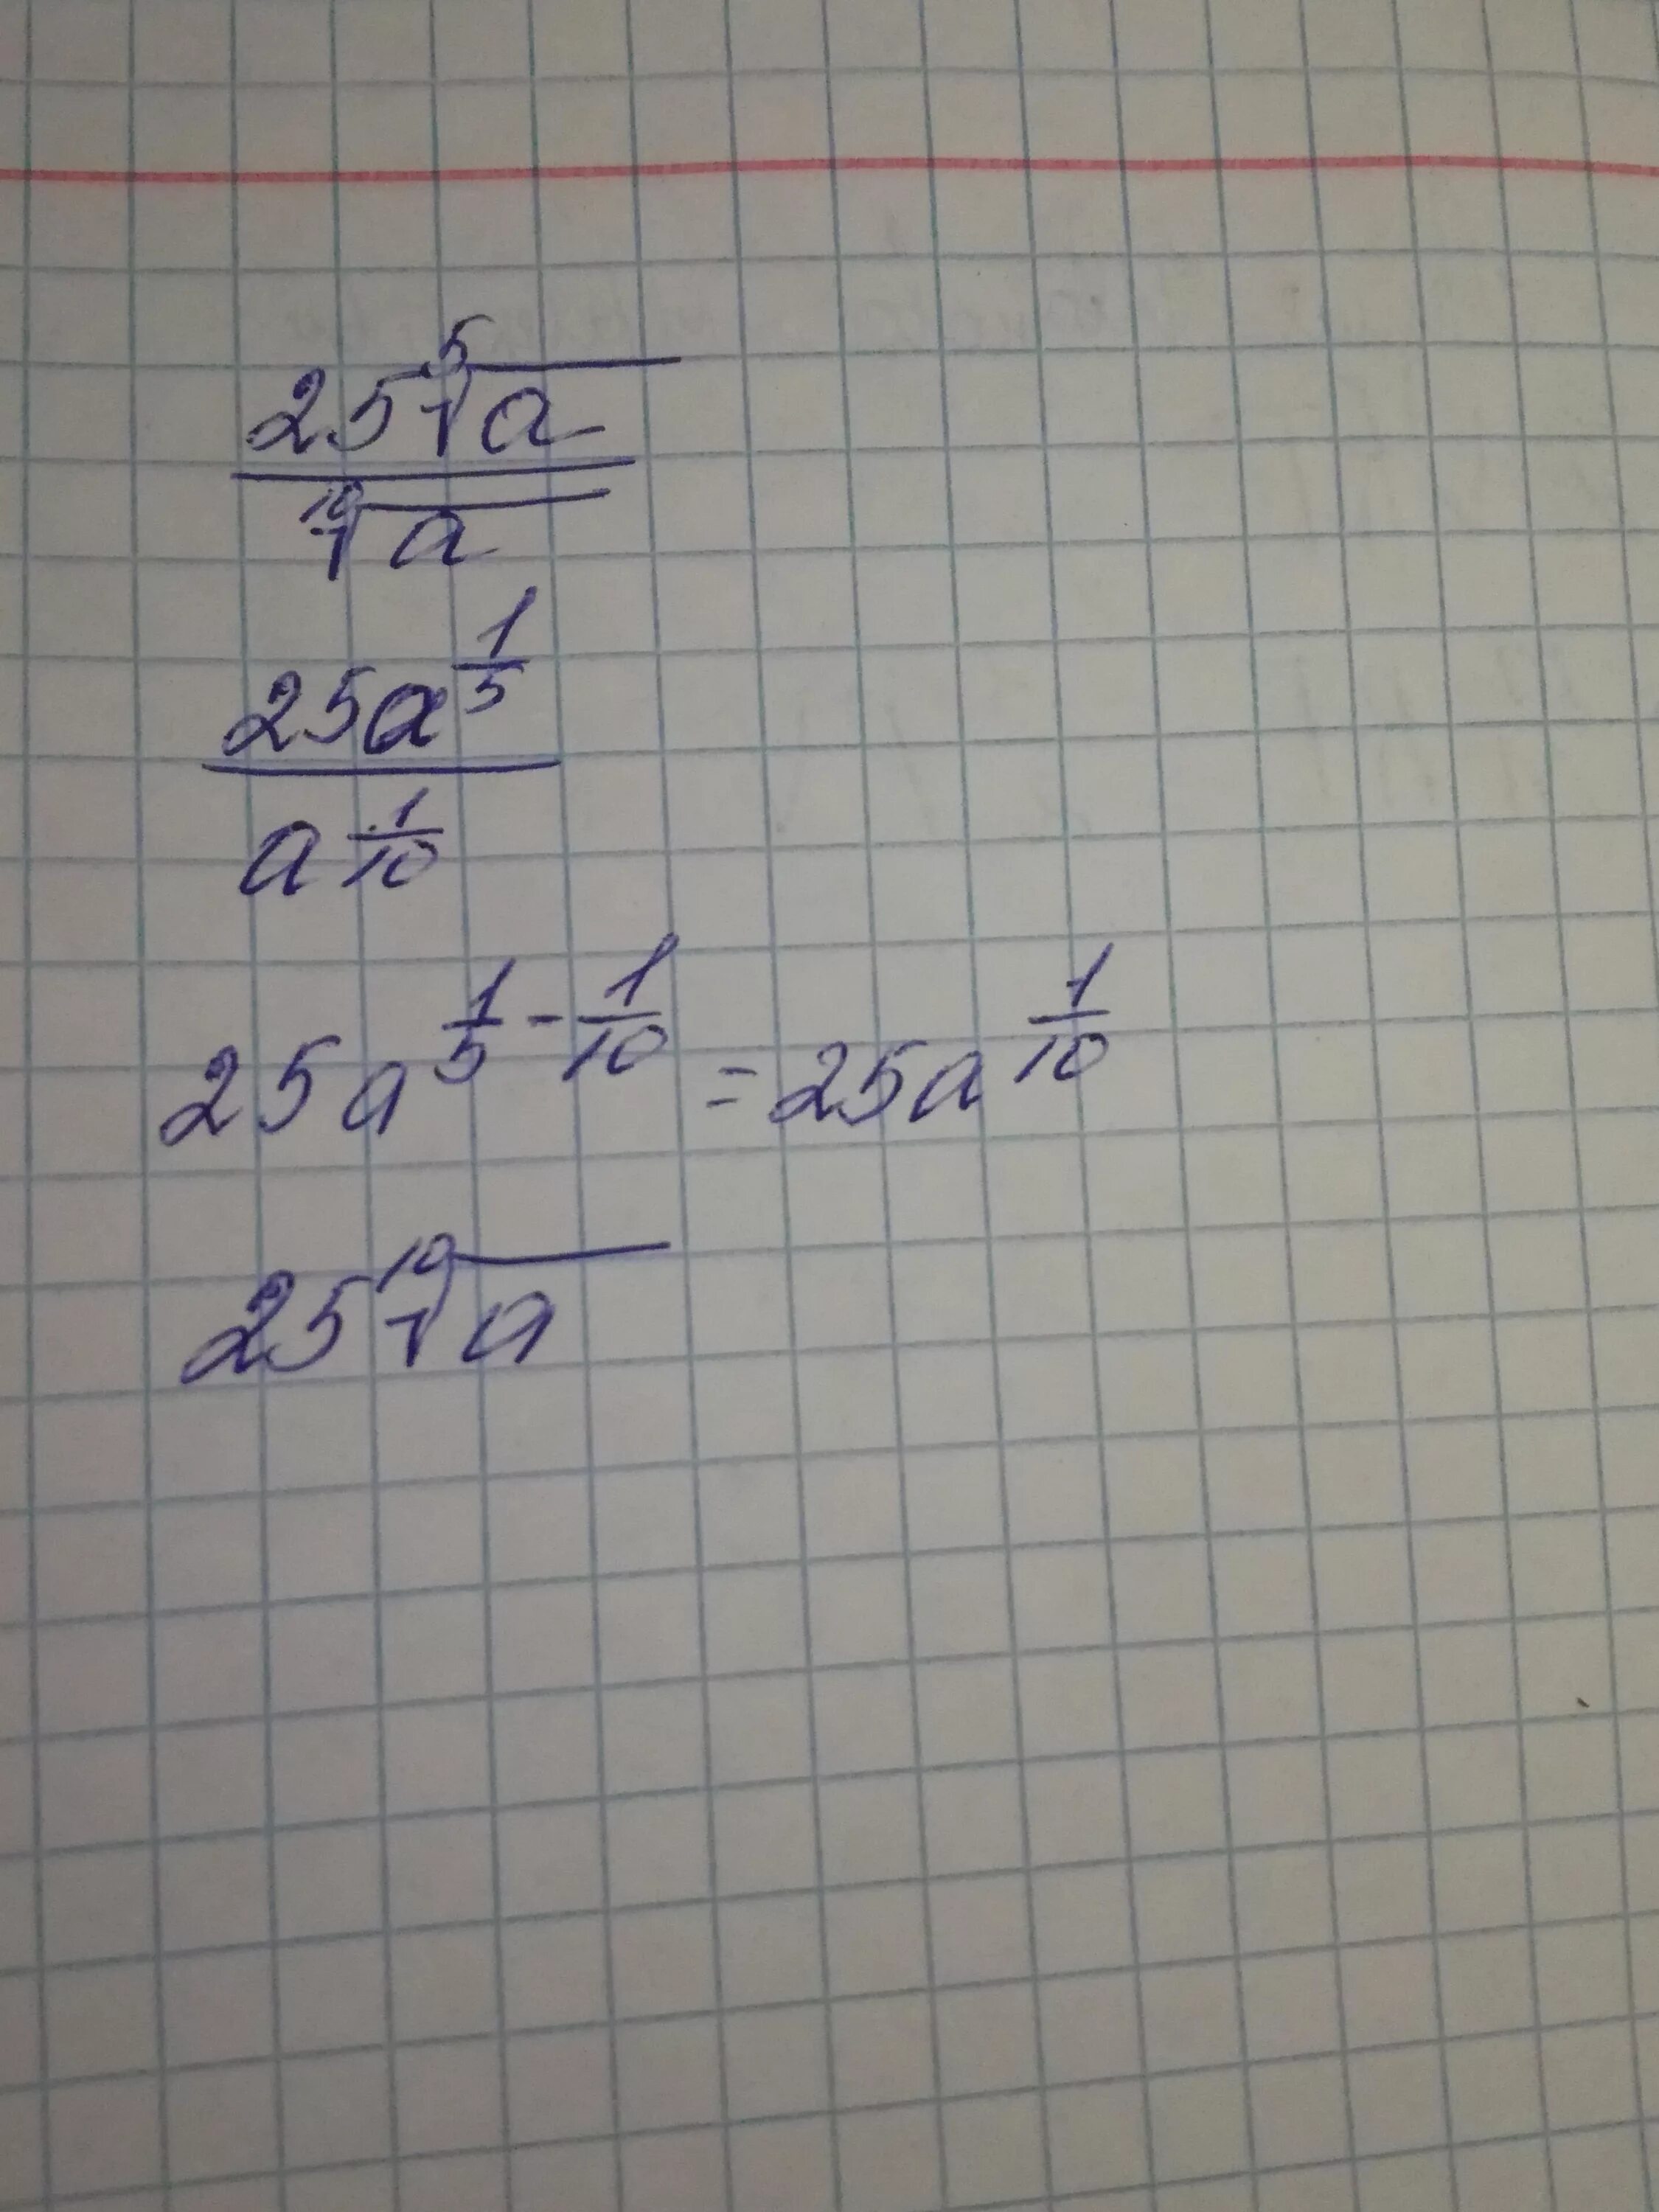 25⁵√a
¹⁰√a
25a^(1/5)
a^(1/10)
25a^(1/5 - 1/10) = 25a^(1/10)
25¹⁰√a